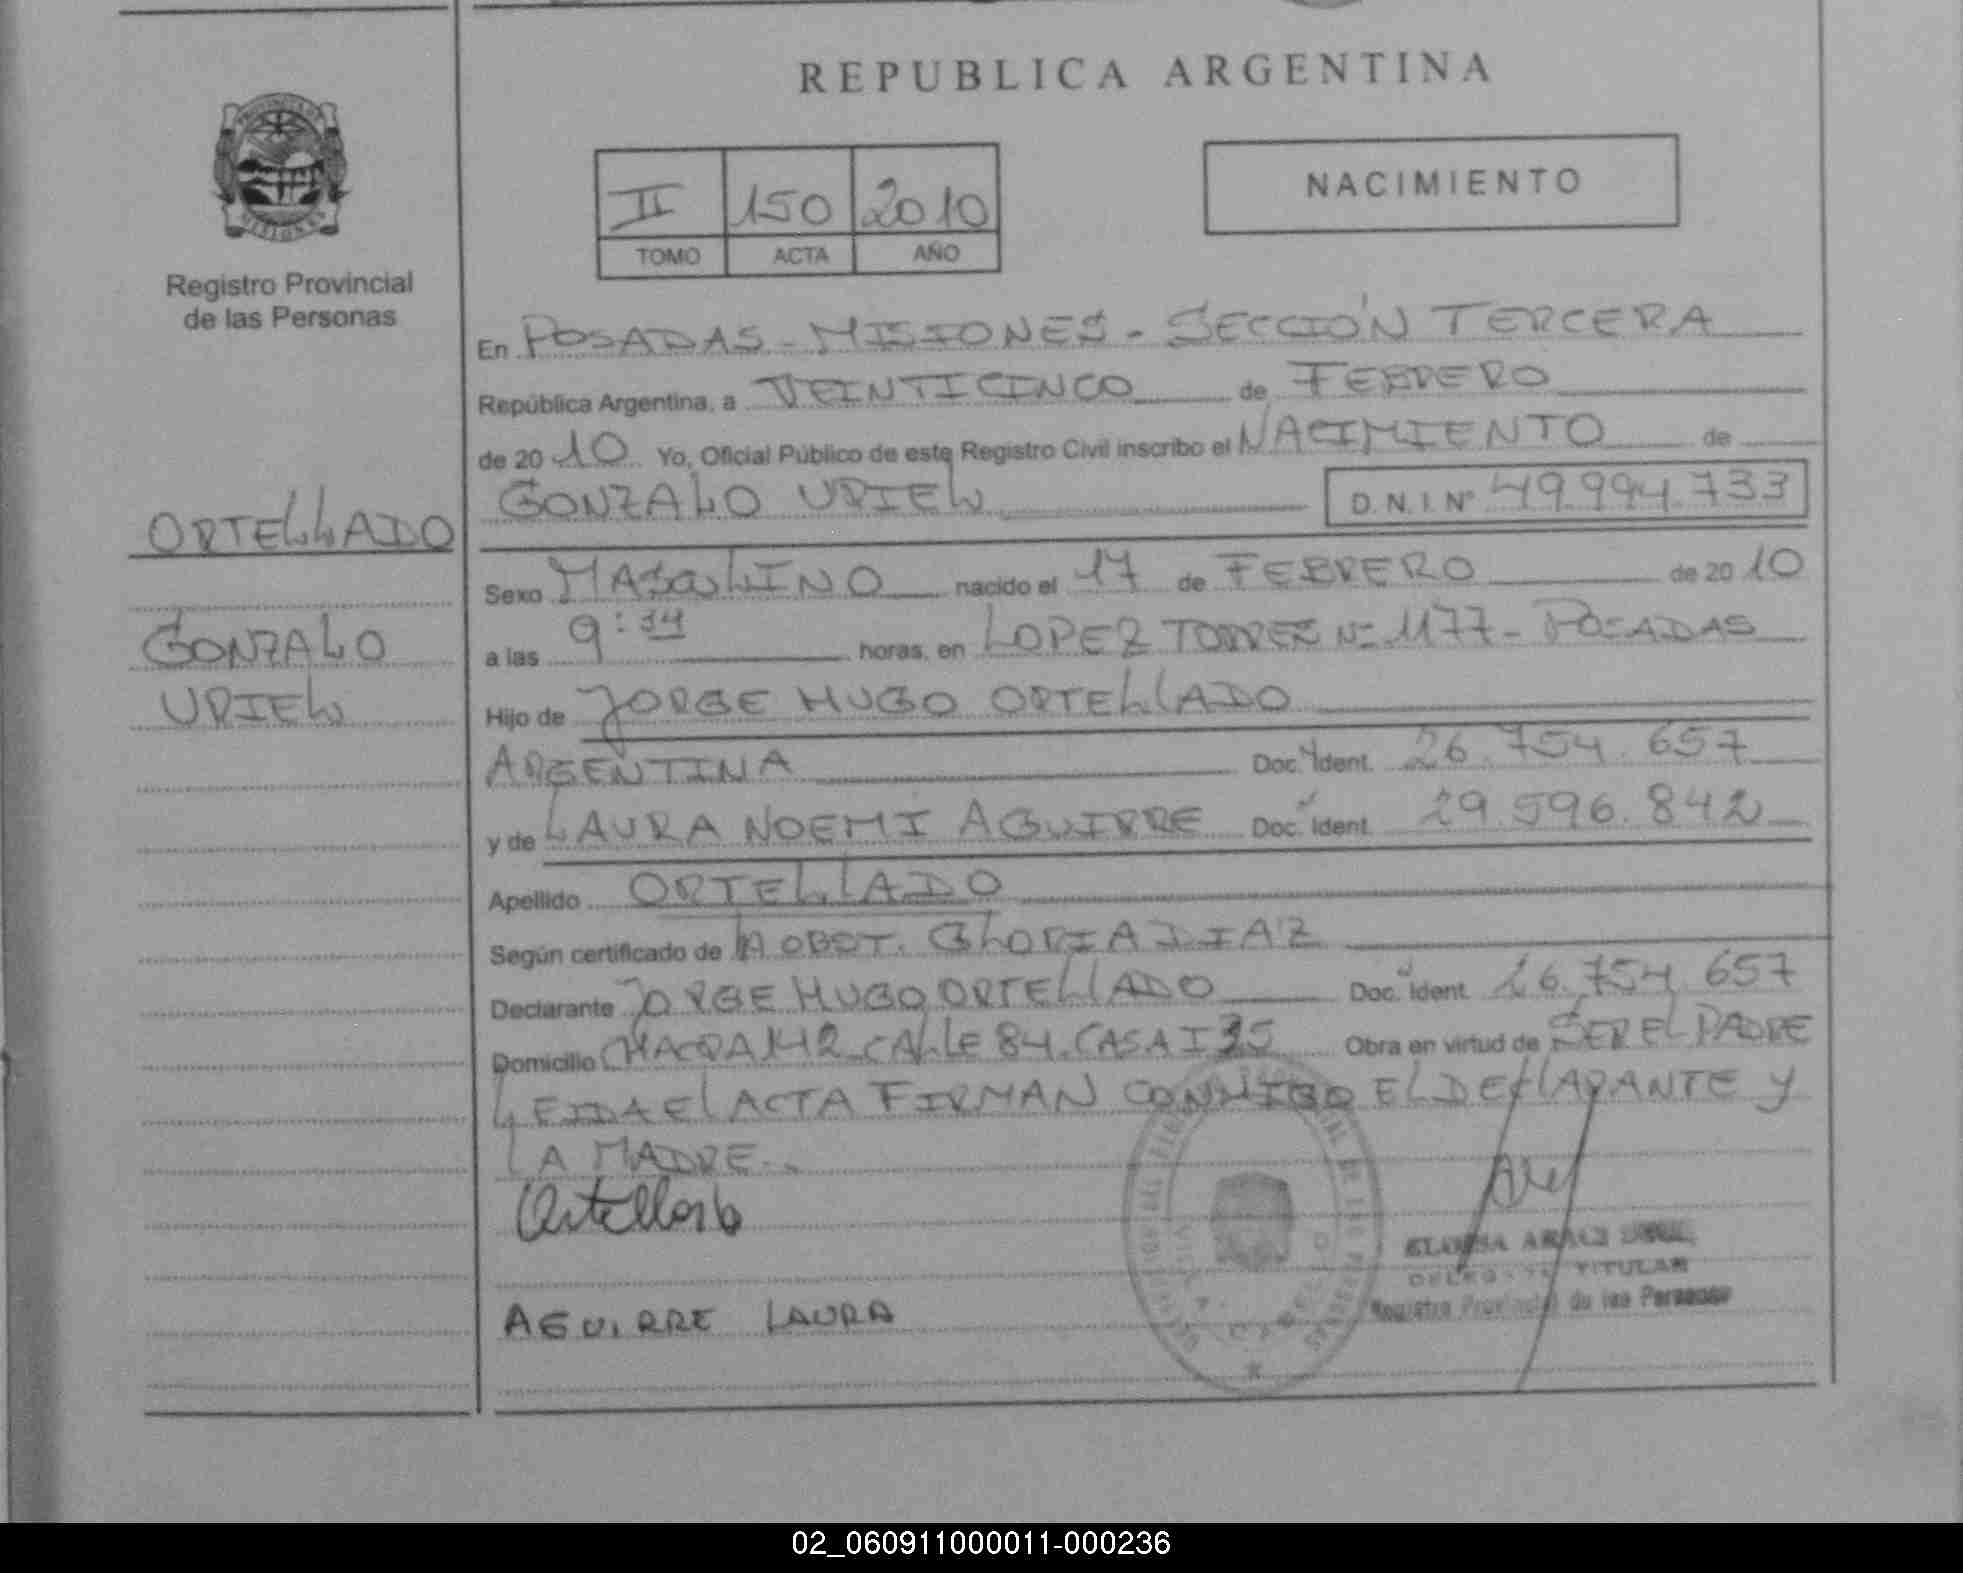 REPUBLICA ARGENTINA
PROVINCIA DE
MISIONES
Registro Provincial
de las Personas
II 150 2010
TOMO ACTA AÑO
NACIMIENTO
En POSADAS - MISIONES - SECCIÓN TERCERA
República Argentina, a VEINTICINCO de FEBRERO
de 2010 Yo, Oficial Público de este Registro Civil inscribo el NACIMIENTO de
GONZALO URIEL D.N.I. Nº 49.994.733
ORTELLADO
GONZALO
URIEL
Sexo MASCULINO nacido el 17 de FEBRERO de 2010
a las 9:34 horas, en LOPEZ TORRES Nº 1177 - POSADAS
Hijo de JORGE HUGO ORTELLADO
ARGENTINA Doc. Ident. 26.754.657
y de LAURA NOEMI AGUIRRE Doc. Ident. 29.596.842
Apellido ORTELLADO
Según certificado de LA OBST. GLORIA DIAZ
Declarante JORGE HUGO ORTELLADO Doc. Ident. 26.754.657
Domicilio CHACRA 142 CALLE 84 CASA I Obra en virtud de SER EL PADRE
LEIDA EL ACTA FIRMAN CONMIGO EL DECLARANTE Y
LA MADRE.-
Ortellado
TITULAR
Registro Provincial de las Personas
AGUIRRE LAURA
02_060911000011-000236